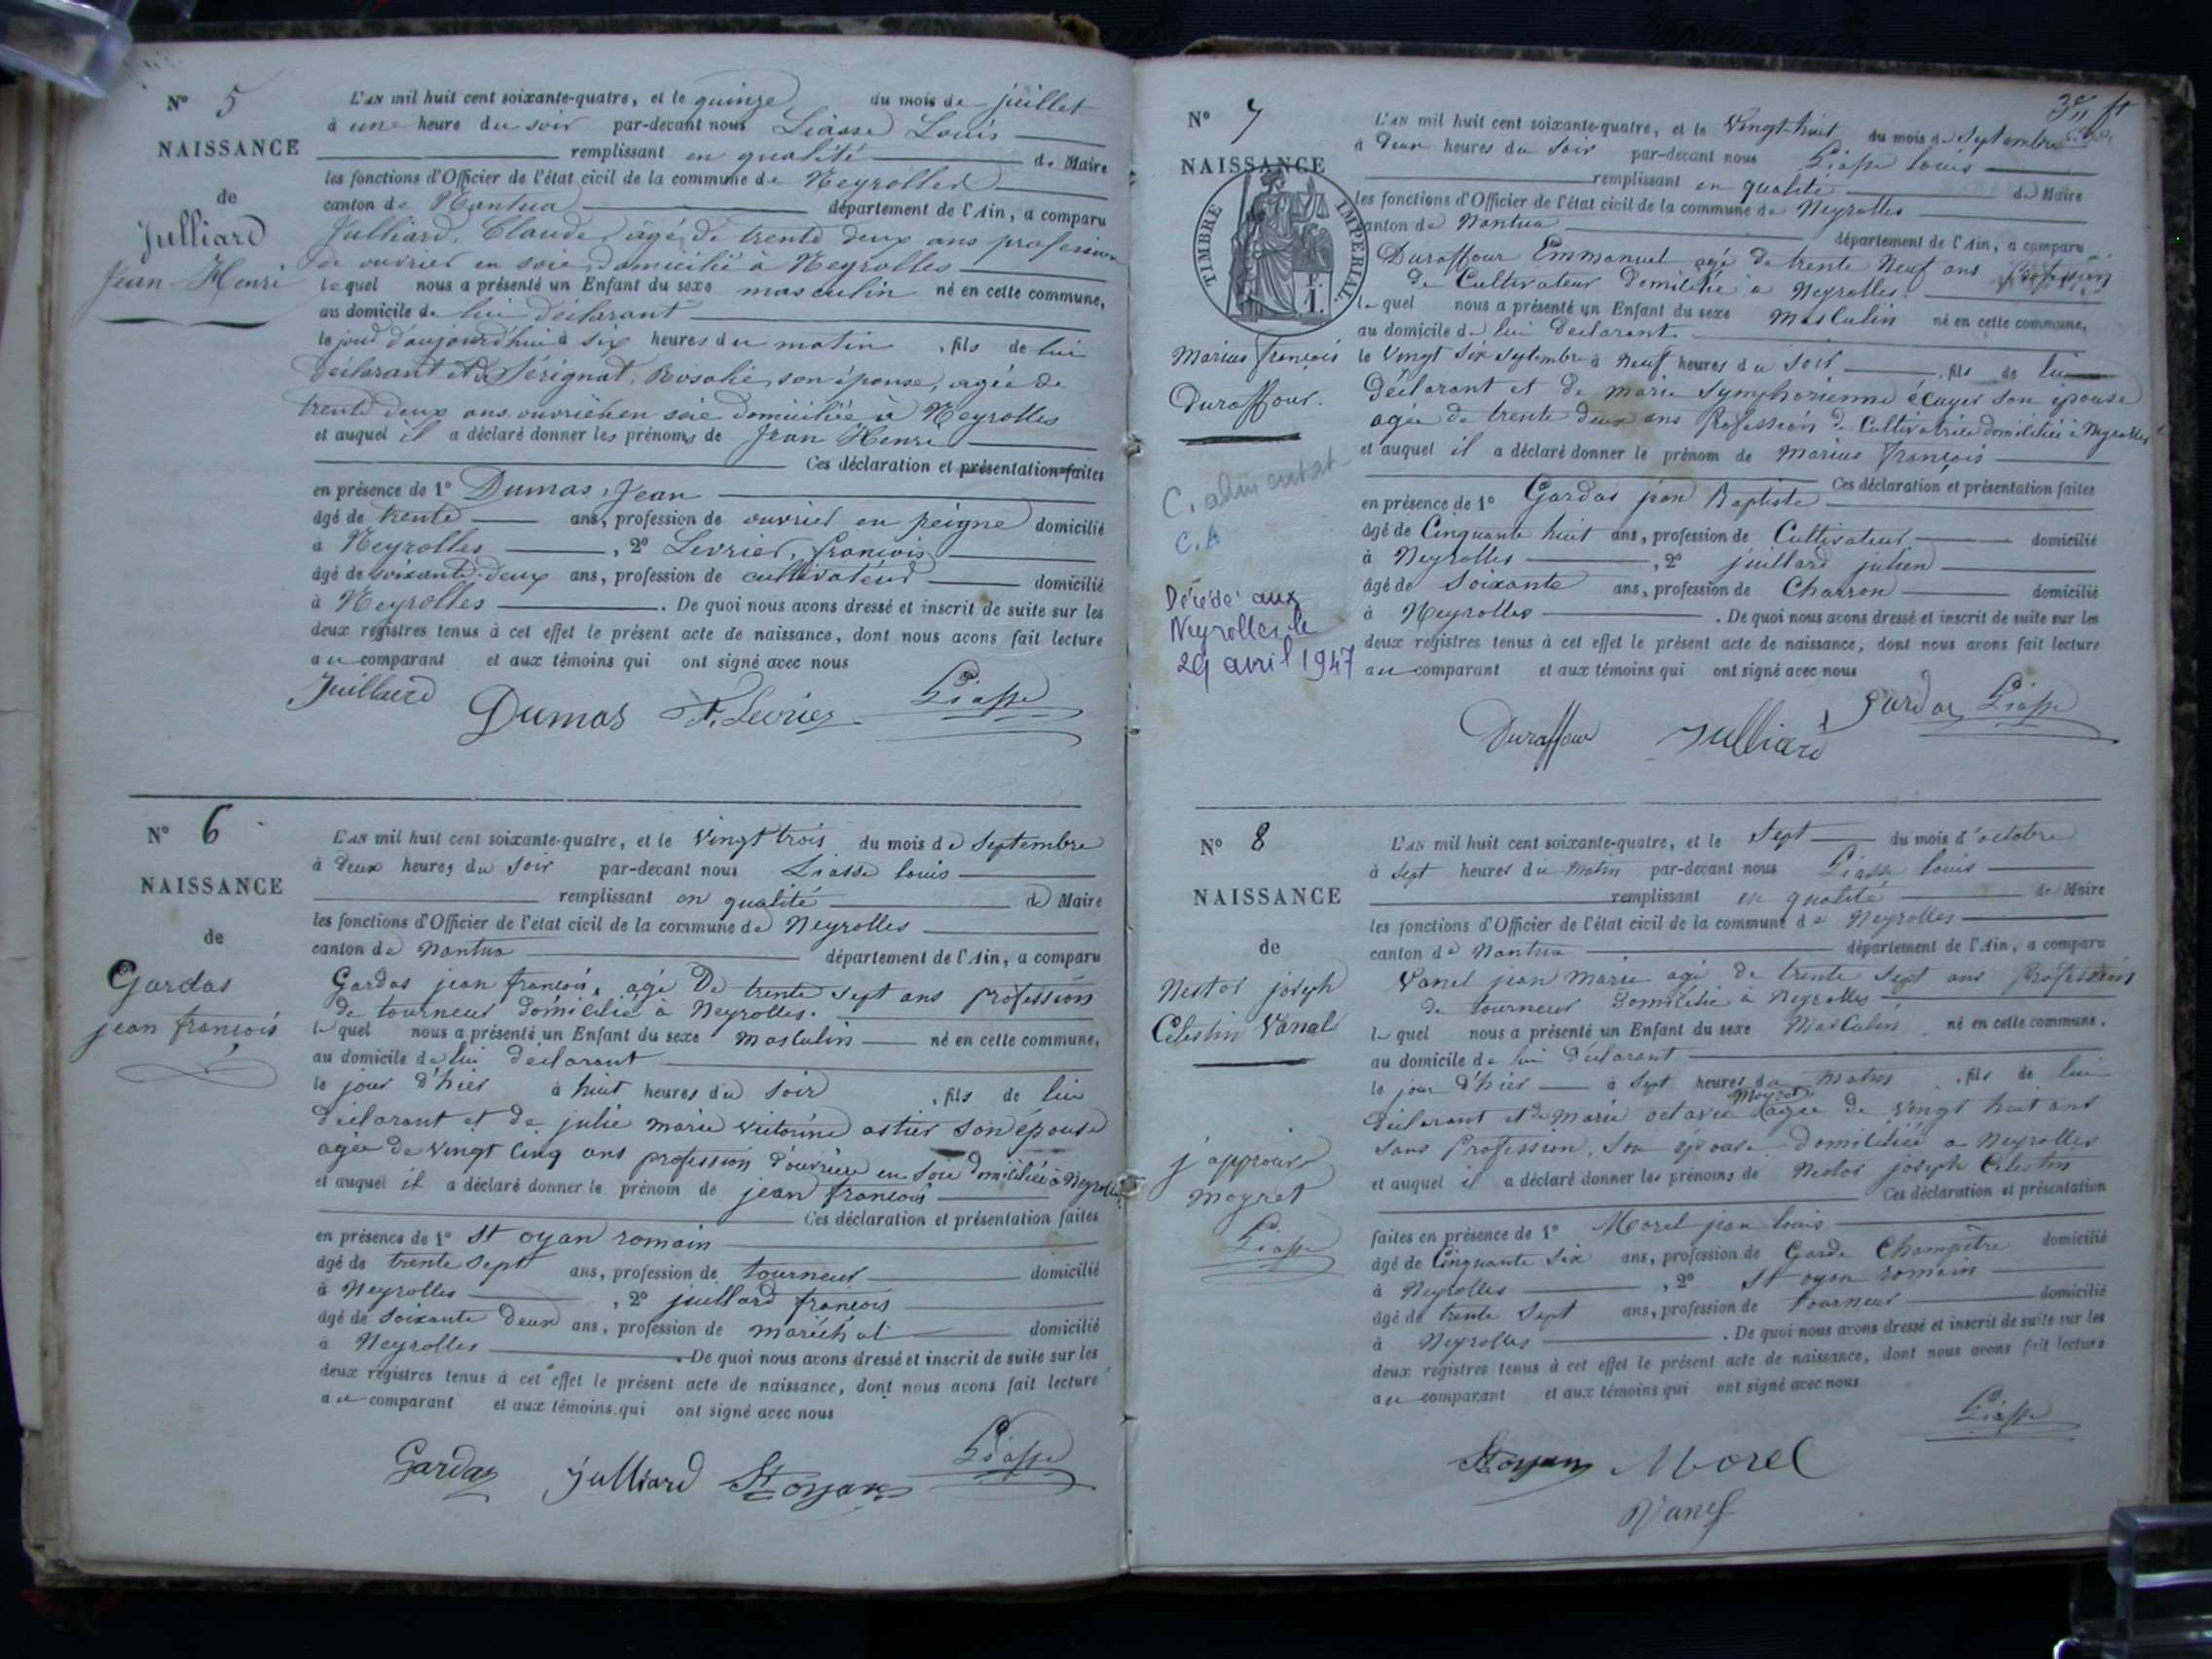 N° 5
NAISSANCE
de
Julliard
Jean-Henri
L'AN mil huit cent soixante-quatre, et le quinze du mois de juillet
à une heure du soir par-devant nous Liasse Louis
remplissant en qualité de Maire
les fonctions d'Officier de l'état civil de la commune de Neyrolles
canton de Nantua département de l'Ain, a comparu
Julliard, Claude, âgé de trente deux ans profession
de ouvrier en soie domicilié à Neyrolles
lequel nous a présenté un Enfant du sexe masculin né en cette commune,
au domicile de lui déclarant
le jour d'aujourd'hui à six heures du matin, fils de lui
déclarant et de Sérignat, Rosalie, son épouse, agée de
trente deux ans ouvrière en soie domiciliée à Neyrolles
et auquel il a déclaré donner les prénoms de Jean Henri
Ces déclaration et présentation faites
en présence de 1° Dumas, Jean
âgé de trente ans, profession de ouvrier en peigne domicilié
à Neyrolles, 2° Levrier, françois
âgé de soixante-deux ans, profession de cultivateur domicilié
à Neyrolles. De quoi nous avons dressé et inscrit de suite sur les
deux registres tenus à cet effet le présent acte de naissance, dont nous avons fait lecture
au comparant et aux témoins qui ont signé avec nous
Juilliard Dumas F. Levrier Liasse
N° 6
NAISSANCE
de
Gardas
jean françois
L'AN mil huit cent soixante-quatre, et le Vingt trois du mois de Septembre
à Deux heures du Soir par-devant nous Liasse louis
remplissant en qualité de Maire
les fonctions d'Officier de l'état civil de la commune de Neyrolles
canton de Nantua département de l'Ain, a comparu
Gardas jean françois, agé De trente sept ans profession
de tourneur domicilié à Neyrolles.
lequel nous a présenté un Enfant du sexe Masculin né en cette commune,
au domicile de lui déclarant
le jour d'hier à huit heures du Soir, fils de lui
déclarant et de julie marie victorine astier Son épouse
agée de Vingt Cinq ans profession d'ouvrière en Soie domiciliée à Neyrolles
et auquel il a déclaré donner le prénom de jean françois
Ces déclaration et présentation faites
en présence de 1° St oyan romain
âgé de trente sept ans, profession de tourneur domicilié
à Neyrolles, 2° juillard françois
âgé de Soixante Deux ans, profession de maréchal domicilié
à Neyrolles. De quoi nous avons dressé et inscrit de suite sur les
deux registres tenus à cet effet le présent acte de naissance, dont nous avons fait lecture
au comparant et aux témoins qui ont signé avec nous
Gardas Julliard St oyan Liasse
N° 7
NAISSANCE
TIMBRE IMPERIAL
1 F.
Marius françois
Duraffour.
C. A
Décédé aux
Neyrolles le
29 avril 1947
L'AN mil huit cent soixante-quatre, et le Vingt-huit du mois de Septembre
à Deux heures du Soir par-devant nous Liasse louis
remplissant en qualité de Maire
les fonctions d'Officier de l'état civil de la commune de Neyrolles
canton de Nantua département de l'Ain, a comparu
Duraffour Emmanuel agé de trente Neuf ans Profession
de Cultivateur domicilié à Neyrolles.
lequel nous a présenté un Enfant du sexe Masculin né en cette commune,
au domicile de lui déclarant.
le Vingt Six Septembre à Neuf heures du Soir, fils de lui
déclarant et de marie Symphorienne écuyer Son épouse
agée de trente deux ans Profession de Cultivatrice domiciliée à Neyrolles
et auquel il a déclaré donner le prénom de Marius françois
Ces déclaration et présentation faites
en présence de 1° Gardas jean Baptiste
âgé de Cinquante huit ans, profession de Cultivateur domicilié
à Neyrolles, 2° juillard julien
âgé de Soixante ans, profession de Charron domicilié
à Neyrolles. De quoi nous avons dressé et inscrit de suite sur les
deux registres tenus à cet effet le présent acte de naissance, dont nous avons fait lecture
au comparant et aux témoins qui ont signé avec nous
Duraffour Julliard Gardas Liasse
N° 8
NAISSANCE
de
Nestor joseph
Celestin Vanel
j'approuve
moyret
Liasse
L'AN mil huit cent soixante-quatre, et le Sept du mois d'octobre
à Sept heures du Matin par-devant nous Liasse louis
remplissant en qualité de Maire
les fonctions d'Officier de l'état civil de la commune de Neyrolles
canton de Nantua département de l'Ain, a comparu
Vanel jean Marie agé de trente Sept ans Profession
de tourneur domicilié à Neyrolles
lequel nous a présenté un Enfant du sexe Masculin né en cette commune.
au domicile de lui déclarant
le jour d'hier à Sept heures du Matin, fils de lui
moyret
déclarant et de Marie octavie agée de Vingt huit ans
Sans Profession, Son épouse domiciliée à Neyrolles
et auquel il a déclaré donner les prénoms de Nestor joseph Celestin
Ces déclaration et présentation
faites en présence de 1° Morel jean louis
âgé de Cinquante Six ans, profession de Garde Champêtre domicilié
à Neyrolles, 2° St oyan romain
âgé de trente Sept ans, profession de tourneur domicilié
à Neyrolles. De quoi nous avons dressé et inscrit de suite sur les
deux registres tenus à cet effet le présent acte de naissance, dont nous avons fait lecture
au comparant et aux témoins qui ont signé avec nous
Liasse
St oyan Morel
Vanel